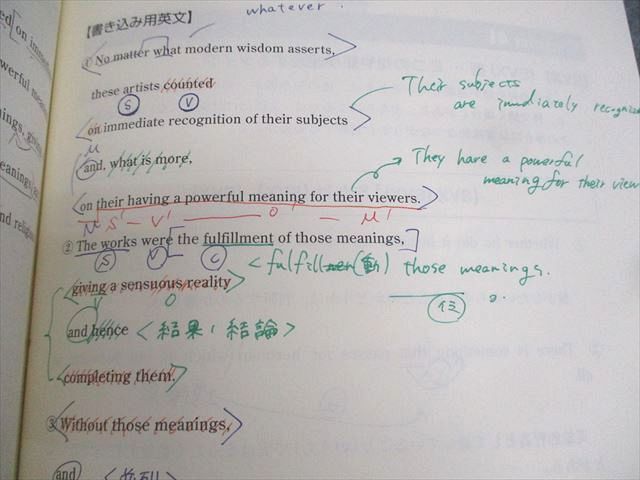 whatever.
【書き込み用英文】
① No matter what modern wisdom asserts,
these artists counted
S V
on immediate recognition of their subjects
Their subjects
are immediately
M
and, what is more,
They have a powerful
meaning for their
on their having a powerful meaning for their viewers.
M S' V' O' M'
② The works were the fulfillment of those meanings,
S V C
<fulfill (動) those meanings.
giving a sensuous reality
V O
and hence <結果・結論>
completing them.
③ Without those meanings,
and <並列>